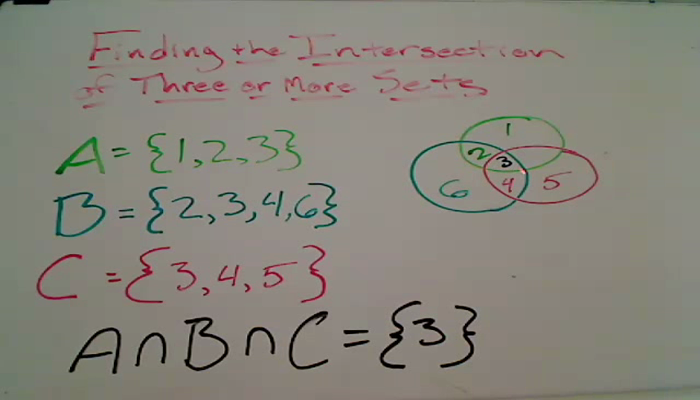 Finding the Intersection
of Three or More Sets
A = {1, 2, 3}
B = {2, 3, 4, 6}
C = {3, 4, 5}
A∩B∩C = {3}
1
2 3
6 4 5